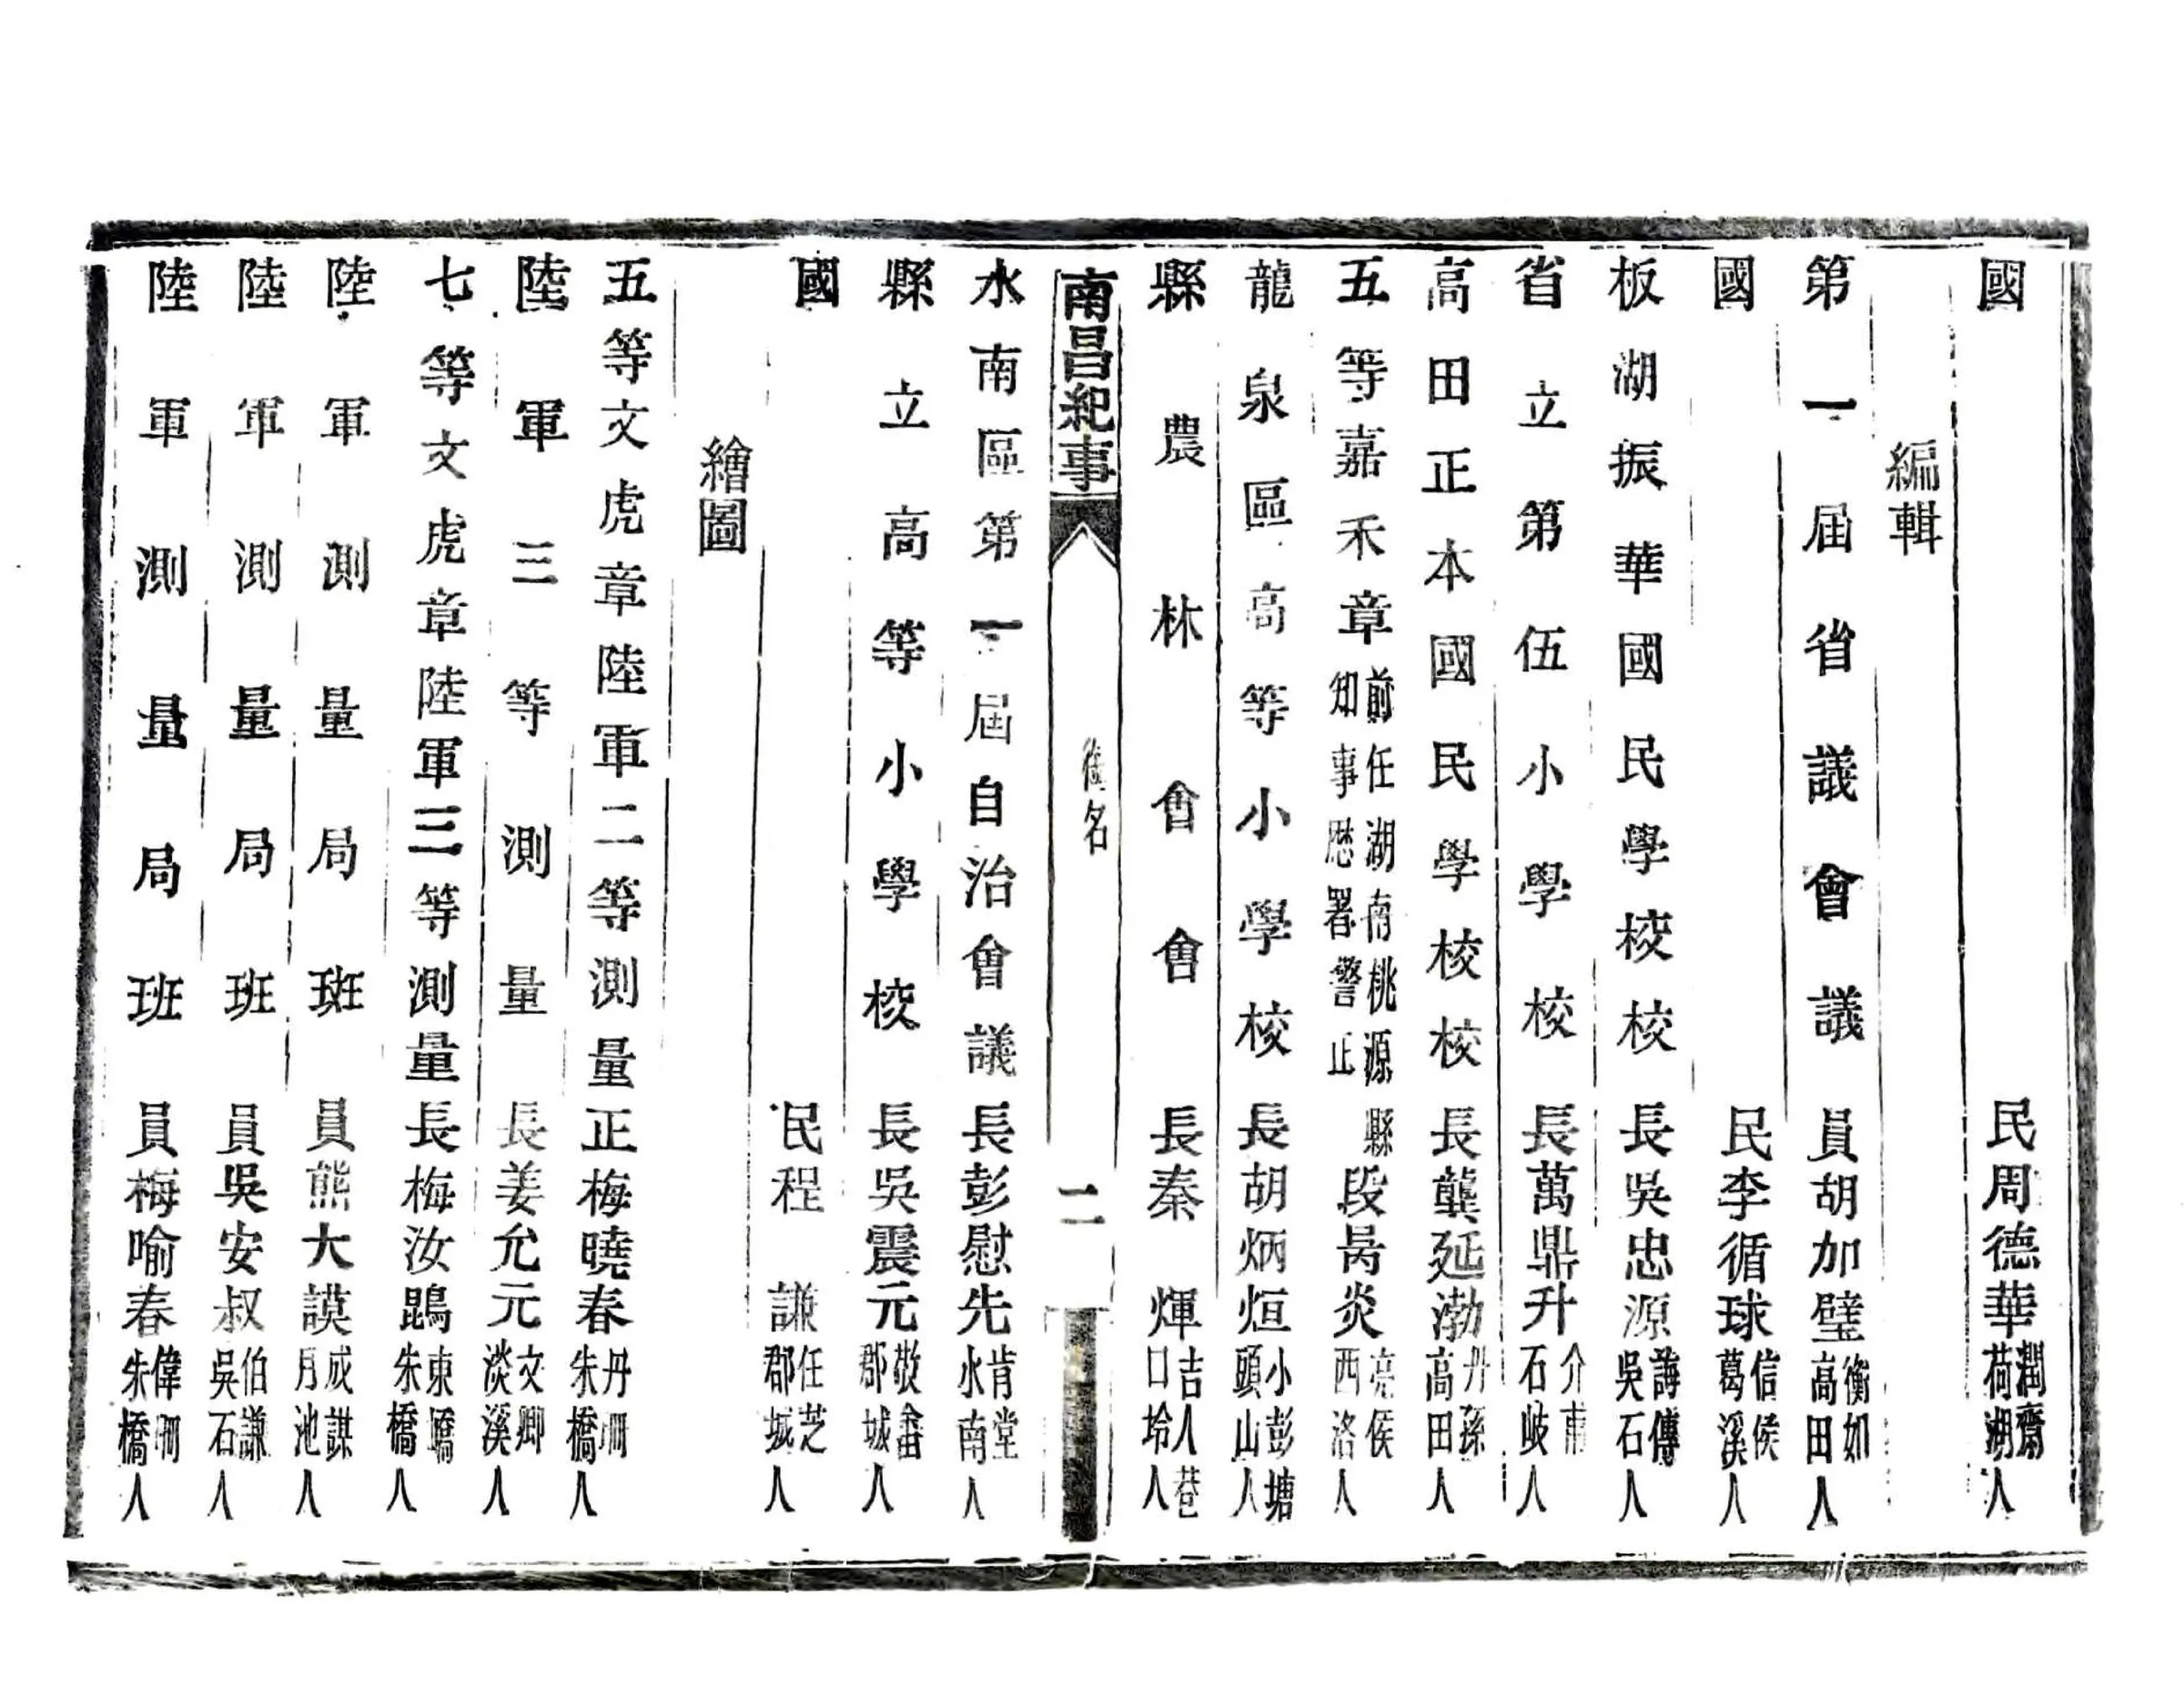 國民周德華潤齋荷湖人
編輯
第一屆省議會議員胡加璧衡如高田人
國民李循球信侯葛溪人
板湖振華國民學校校長吳忠源海傳吳石人
省立第伍小學校長萬鼎升介甫石岐人
高田正本國民學校校長龔延渤丹孫高田人
五等嘉禾章前任湖南桃源縣知事歷署警正段昺炎亮侯西洛人
龍泉區高等小學校長胡炳烜小彭塘頭山人
縣農林會會長秦煇吉人巷口坽人
南昌紀事 銜名 二
水南區第一屆自治會議長彭慰先肯堂水南人
縣立高等小學校長吳震元敬畬郡城人
國民程謙任芝郡城人
繪圖
五等文虎章陸軍二等測量正梅曉春丹珊朱橋人
陸軍三等測量長姜允元文卿淡溪人
七等文虎章陸軍三等測量長梅汝鵾東驕朱橋人
陸軍測量局班員熊大謨成謀月池人
陸軍測量局班員吳安叔伯謙吳石人
陸軍測量局班員梅喻春偉珊朱橋人